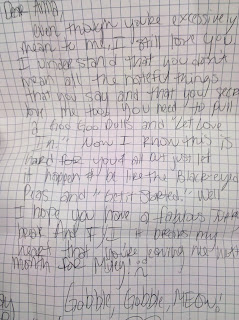 Dear Anna,
even though you're excessively
mean to me, I still love you
I understand that you don't
mean all the hateful things
that you say and that you secretly
love me too. You need to pull
a Goo Goo Dolls and "Let Love
in." Now I know this is
hard for you but just let
it happen & be like the Black-eyed
Peas and "Get it Started." Well
I hope you have a fabulous
year And I
heart that you're leaving me next
month for
Gobble, Gobble, MEOW!